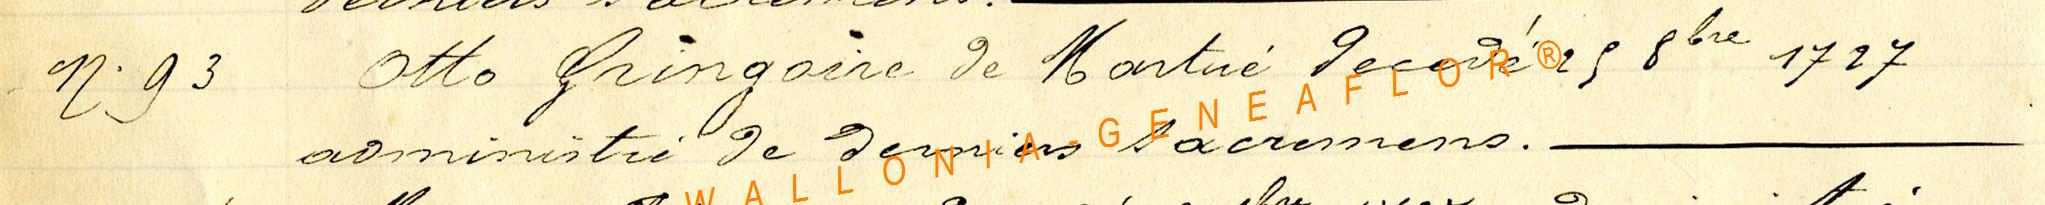 derniers sacremens.
N. 93 Otto Gringoire de Martué decedé 25 8bre 1727
administré de derniers sacremens.
WALLONIA-GENEAFLOR®